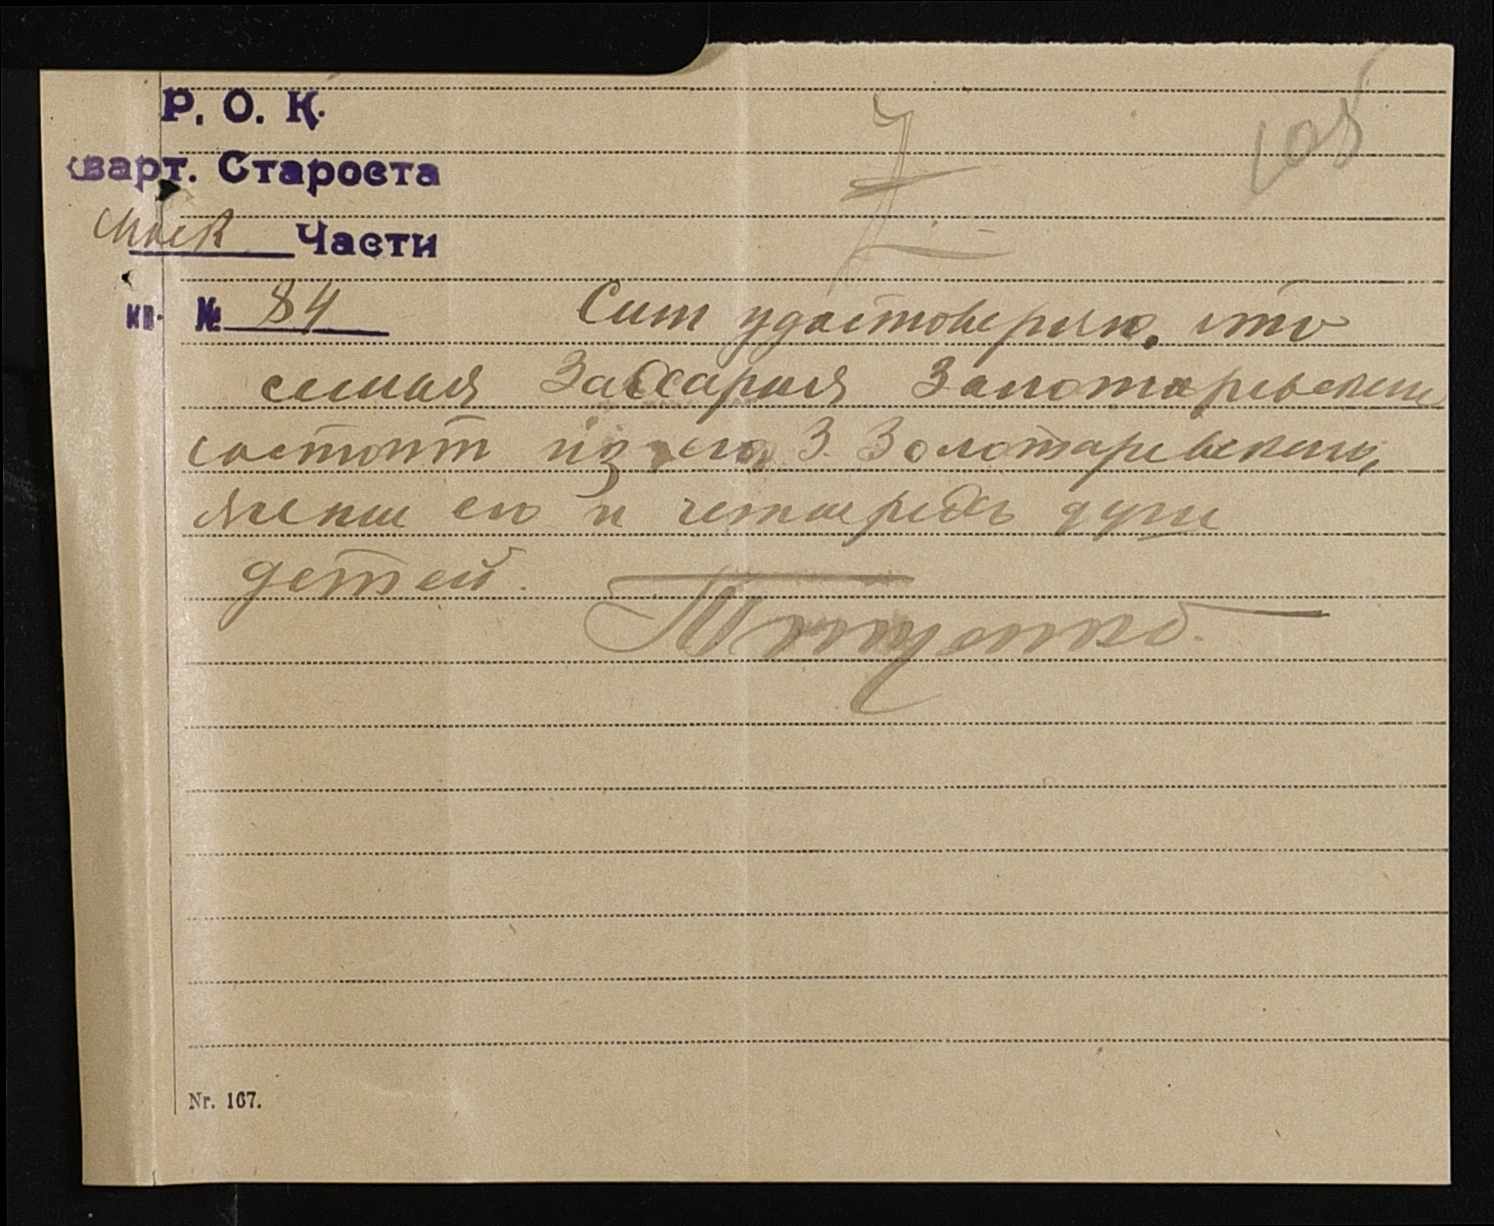 Р. О. К.
кварт. Староста
Моск Части
кв. № 84
105
Сим удостоверяю, что
семья Захария Золотаревского
состоит из его З. Золотаревского,
жены его и четырех душ
детей.
Nr. 167.